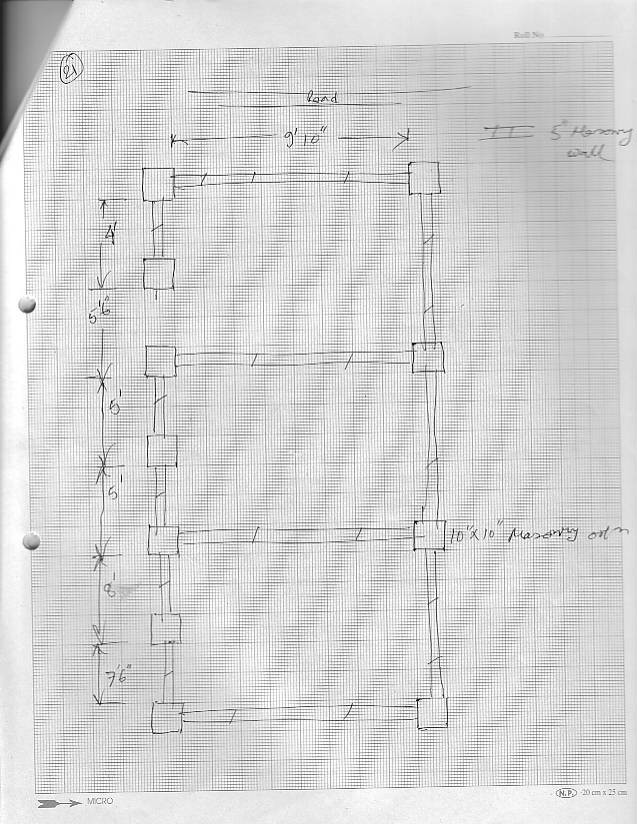 Roll No.
21
Road
9' 10"
5" Masonry
wall
4'
5'6"
5'
5'
10"x10" Masonry
8'
7'6"
MICRO
N.P. 20 cm x 25 cm